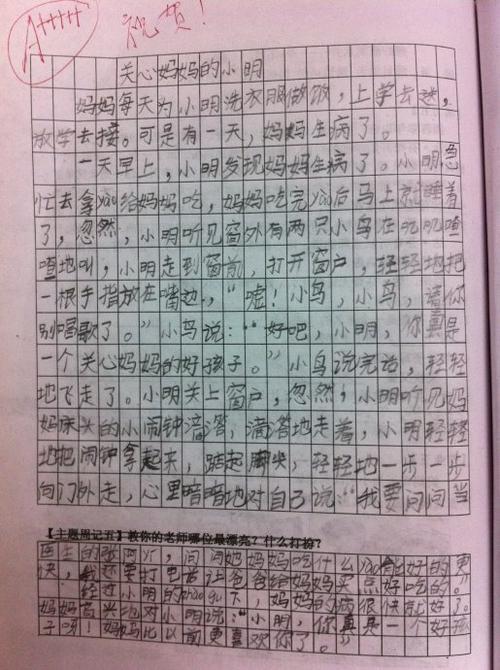 A+++++ 祝贺!
关心妈妈的小明
妈妈每天为小明洗衣服做饭，上学去送，
放学去接。可是有一天，妈妈生病了。
一天早上，小明发现妈妈生病了。小明急
忙去拿yào给妈妈吃，妈妈吃完yào后马上就睡着
了，忽然，小明听见窗外有两只小鸟在叽叽喳
喳地叫，小明走到窗前，打开窗户，轻轻地把
一根手指放在嘴边，“嘘！小鸟，小鸟，请你
别唱歌了。”小鸟说：“好吧，小明，你真是
一个关心妈妈的好孩子。”小鸟说完话，轻轻
地飞走了。小明关上窗户，忽然，小明听见妈
妈床头的小闹钟滴答，滴答地走着，小明轻轻
地把闹钟拿起来，踮起脚尖，轻轻地一步一步
向门外走，心里暗暗地对自己说：“我要问问当
【主题周记五】教你的老师哪位最漂亮？什么打扮？
医生的张阿姨，问问她妈妈吃什么yào会好的更
快，我还要打电话让爸爸给妈妈买点好吃的。”
经过小明的zhào gù下，妈妈的病很快就好了。
妈妈高兴地对小明说：“小明，你真是一个好孩
子呀！妈妈比以前更喜欢你了。”